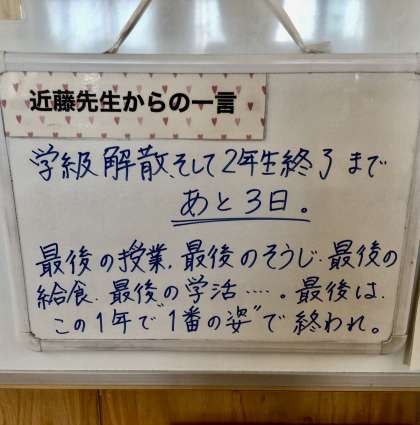 近藤先生からの一言
学級解散、そして2年生終了まで
あと3日。
最後の授業、最後のそうじ、最後の
給食、最後の学活‥‥。最後は、
この1年で"1番の姿"で終われ。